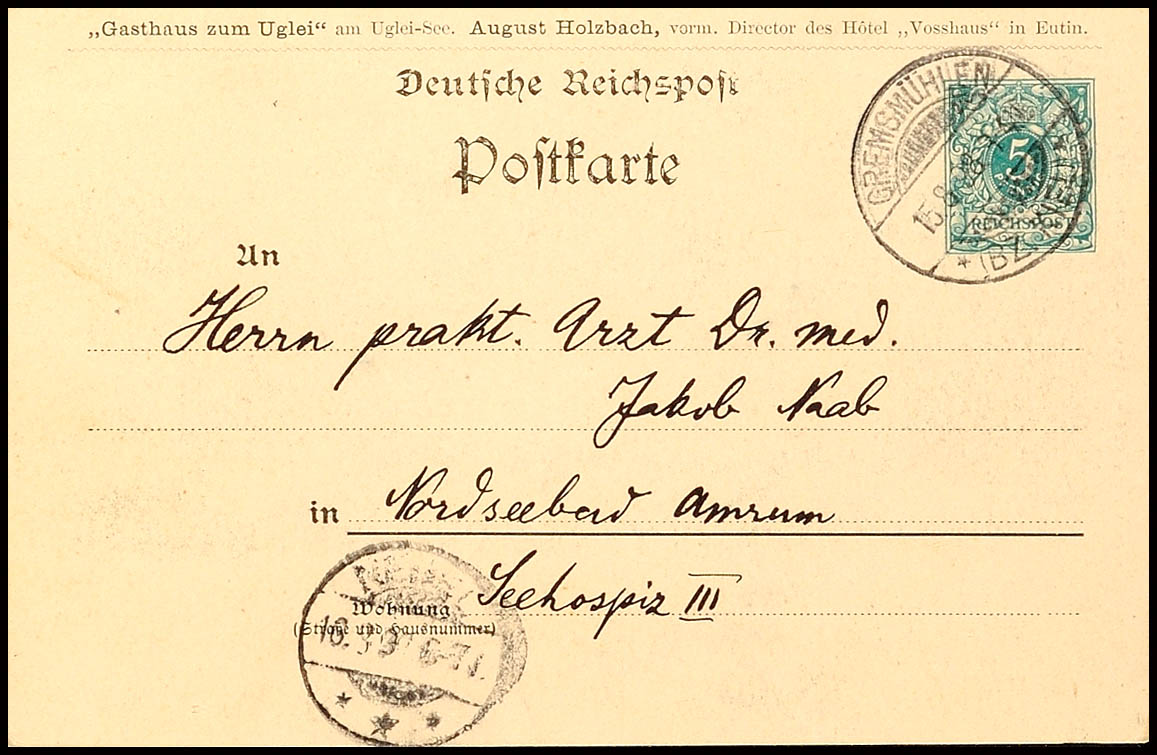 „Gasthaus zum Uglei“ am Uglei-See. August Holzbach, vorm. Director des Hôtel „Vosshaus“ in Eutin.
Deutsche Reichspost
Postkarte
GREMSMÜHLEN
5
REICHSPOST
(BZ.
An
Herrn prakt. Arzt Dr. med.
Jakob Naab
in Nordseebad Amrum
Seehospiz III
Wohnung
(Straße und Hausnummer)